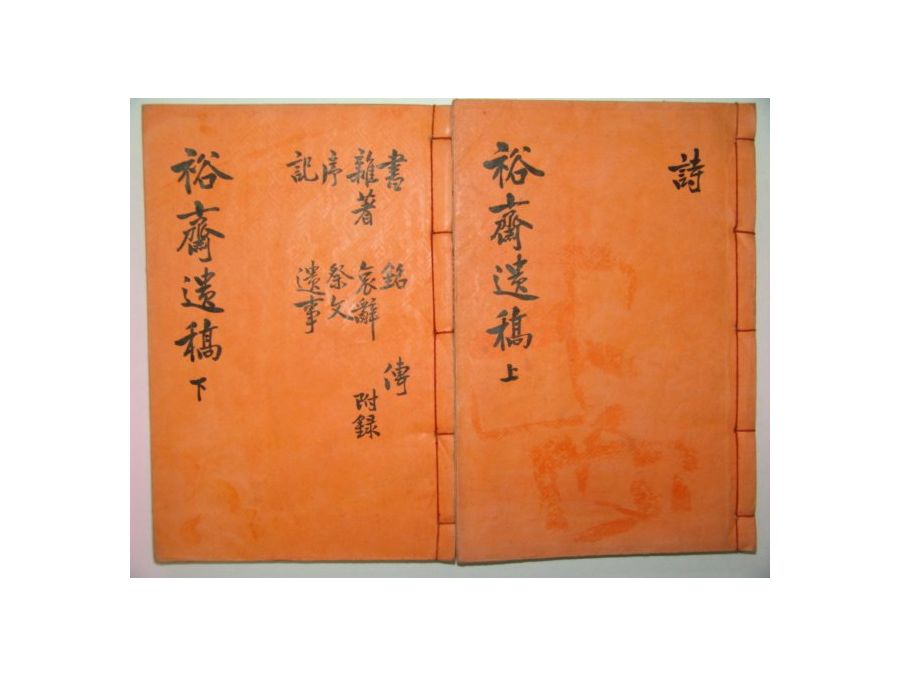 詩
裕齋遺稿 上
書 銘 傳
雜著 哀辭 附錄
序 祭文
記 遺事
裕齋遺稿 下